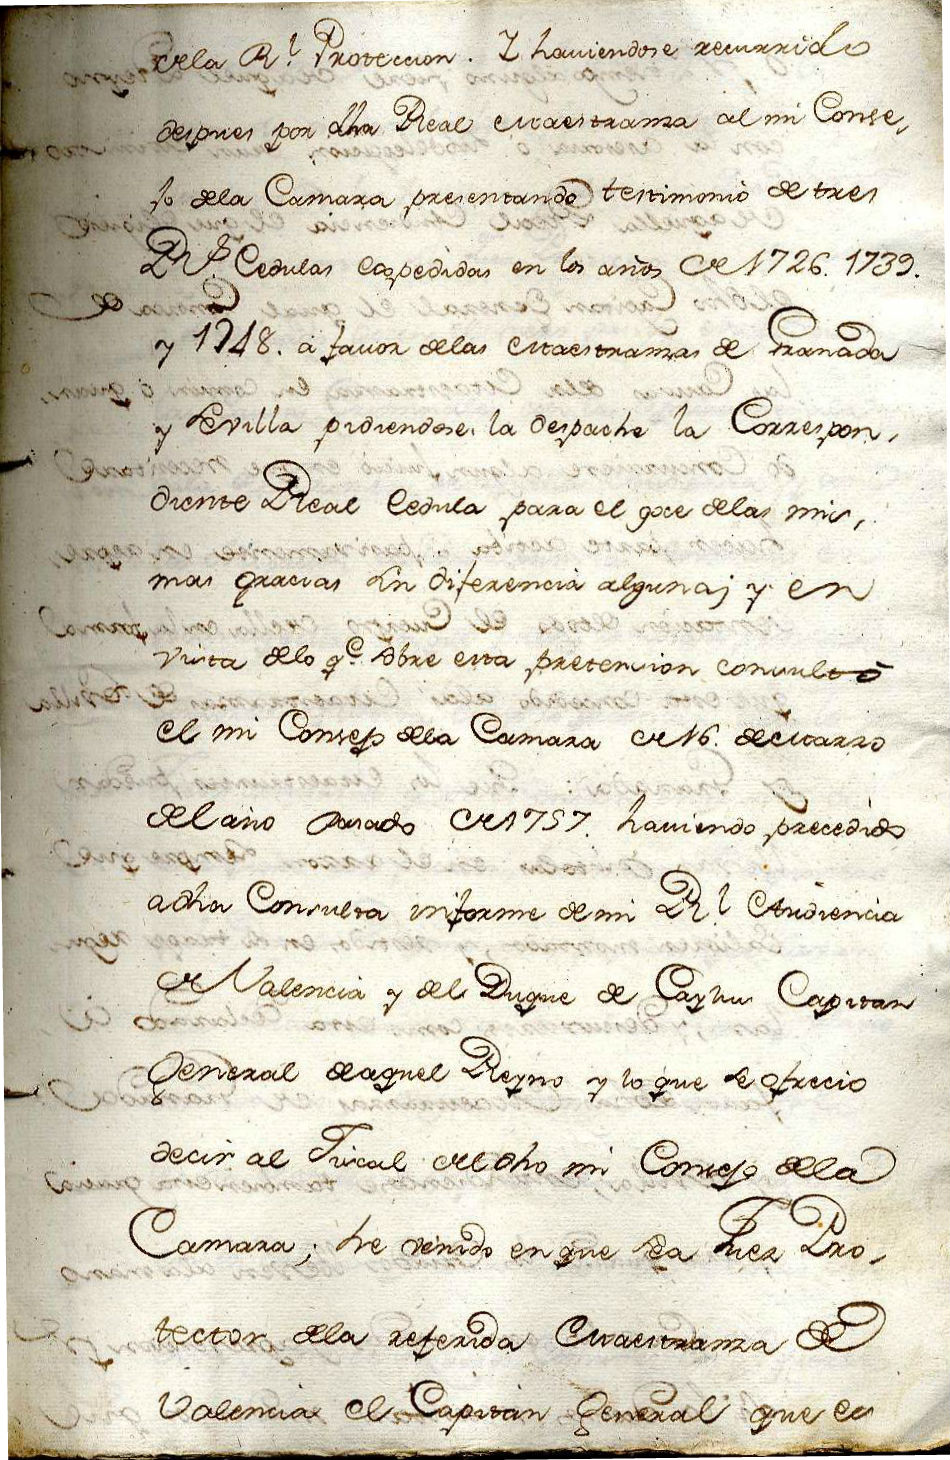 dela R.l Proteccion. Y haviendose recurrido
despues por dha Real Maestranza al mi Conse,
jo dela Camara presentando testimonio de tres
R.s Cedulas expedidas en los años de 1726. 1739.
y 1748. a favor delas Maestranzas de Granada
y Sevilla pidiendose, la despache la Correspon,
diente Real Cedula para el goze delas mis,
mas gracias sin diferencia alguna; y en
vista delo q.e sobre esta pretension consultó
el mi Consejo dela Camara de 16. de Marzo
del año pasado de 1757. haviendo precedido
a dha Consulta informe de mi R.l Audiencia
de Valencia y del Duque de Caylus Capitan
General de aquel Reyno y lo que se ofrecio
decir al Fiscal del dho mi Consejo dela
Camara; he venido en que sea Juez Pro,
tector dela referida Maestranza de
Valencia el Capitan General que es